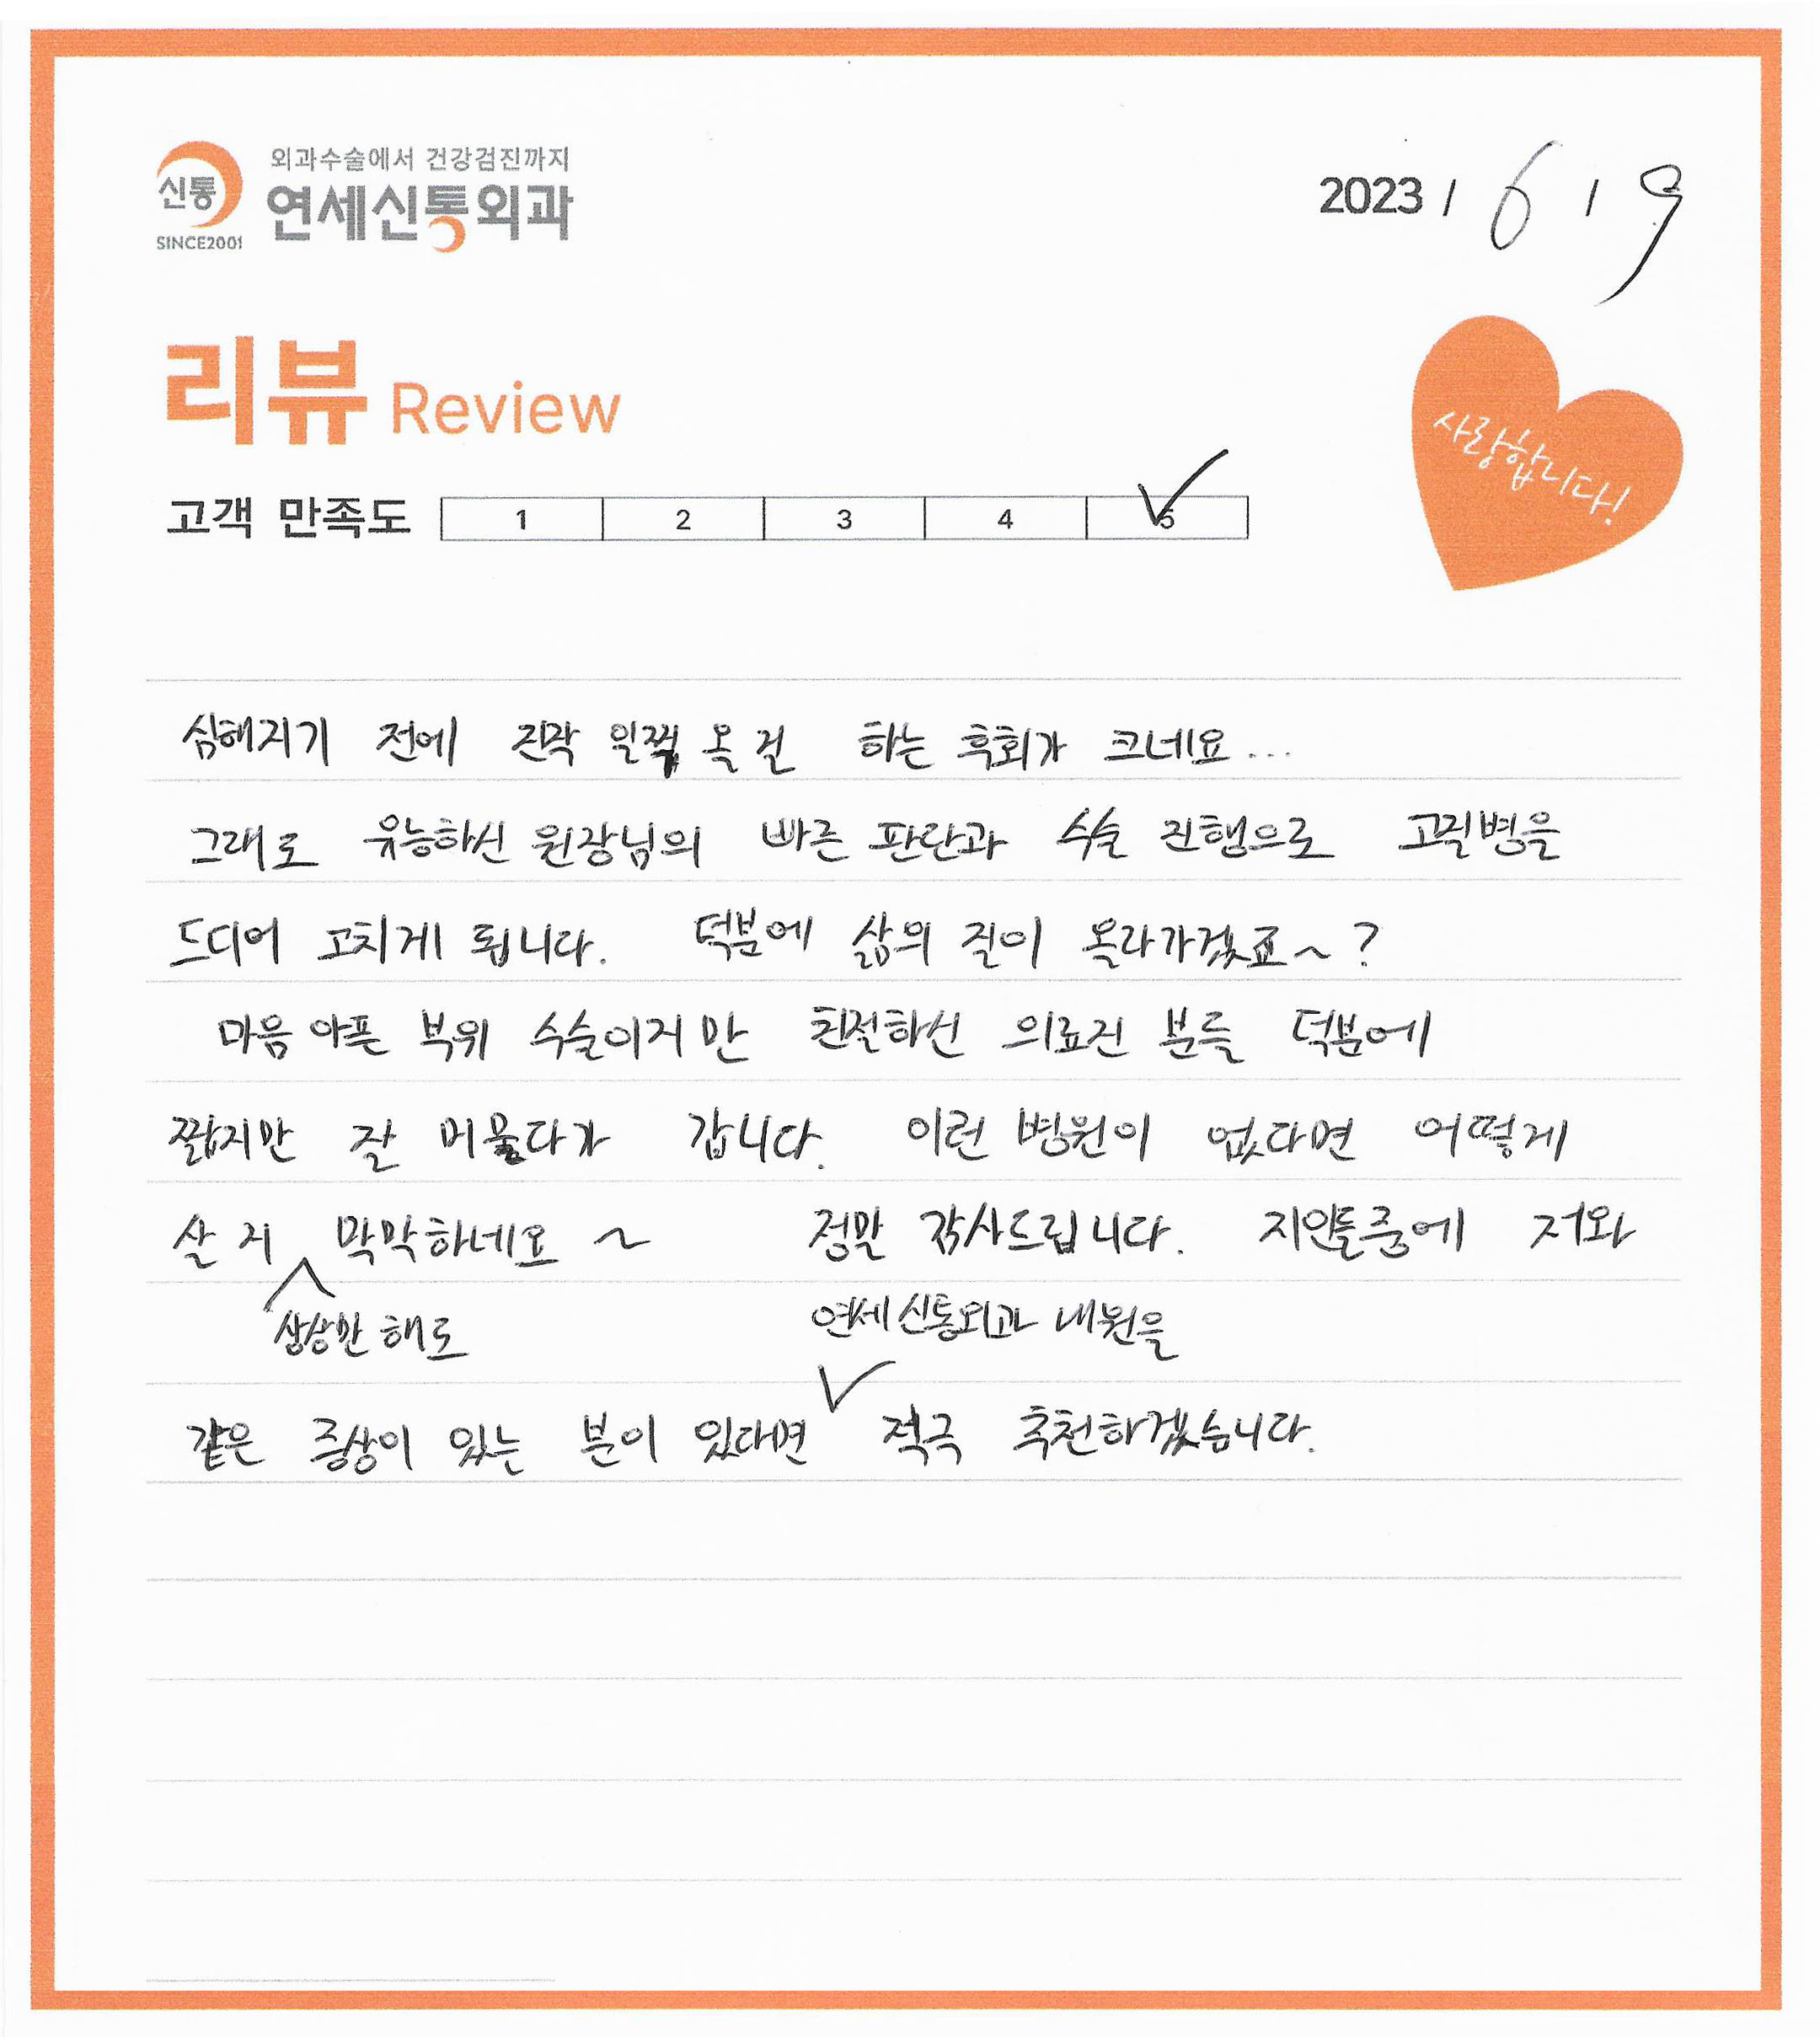 외과수술에서 건강검진까지
신통 연세신통외과
SINCE2001
2023 / 6 / 9
리뷰 Review
사랑합니다!
고객 만족도 1 2 3 4 5
심해지기 전에 진작 일찍 올 걸 하는 후회가 크네요...
그래도 유능하신 원장님의 빠른 판단과 수술 진행으로 고질병을
드디어 고치게 됩니다. 덕분에 삶의 질이 올라가겠죠~?
마음 아픈 부위 수술이지만 친절하신 의료진 분들 덕분에
짧지만 잘 머물다가 갑니다. 이런 병원이 없다면 어떻게
살지 막막하네요~ 정말 감사드립니다. 지인들중에 저와
상상만 해도 연세신통외과 내원을
같은 증상이 있는 분이 있다면 적극 추천하겠습니다.